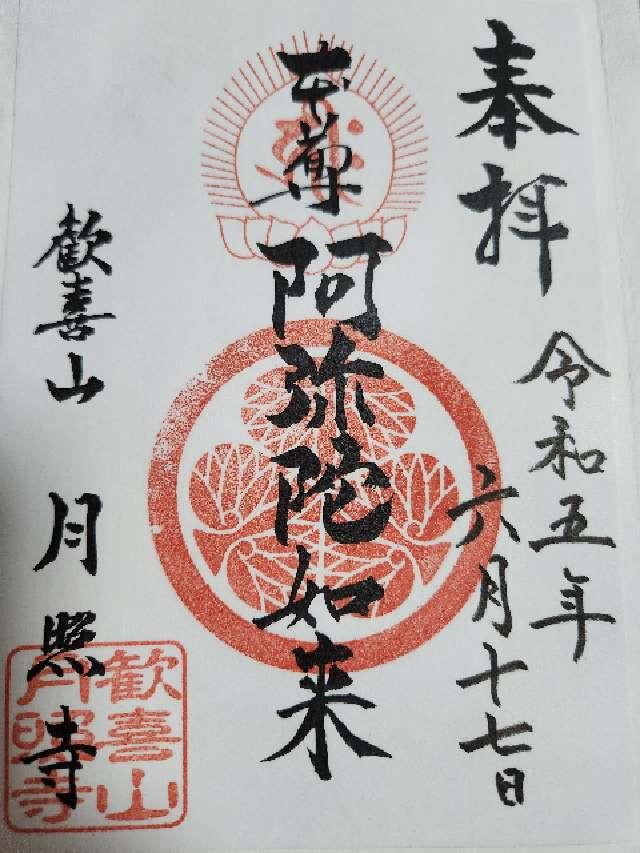 奉拝
令和五年
六月十七日
本尊
阿弥陀如来
歓喜山
月照寺
歓喜山
月照寺